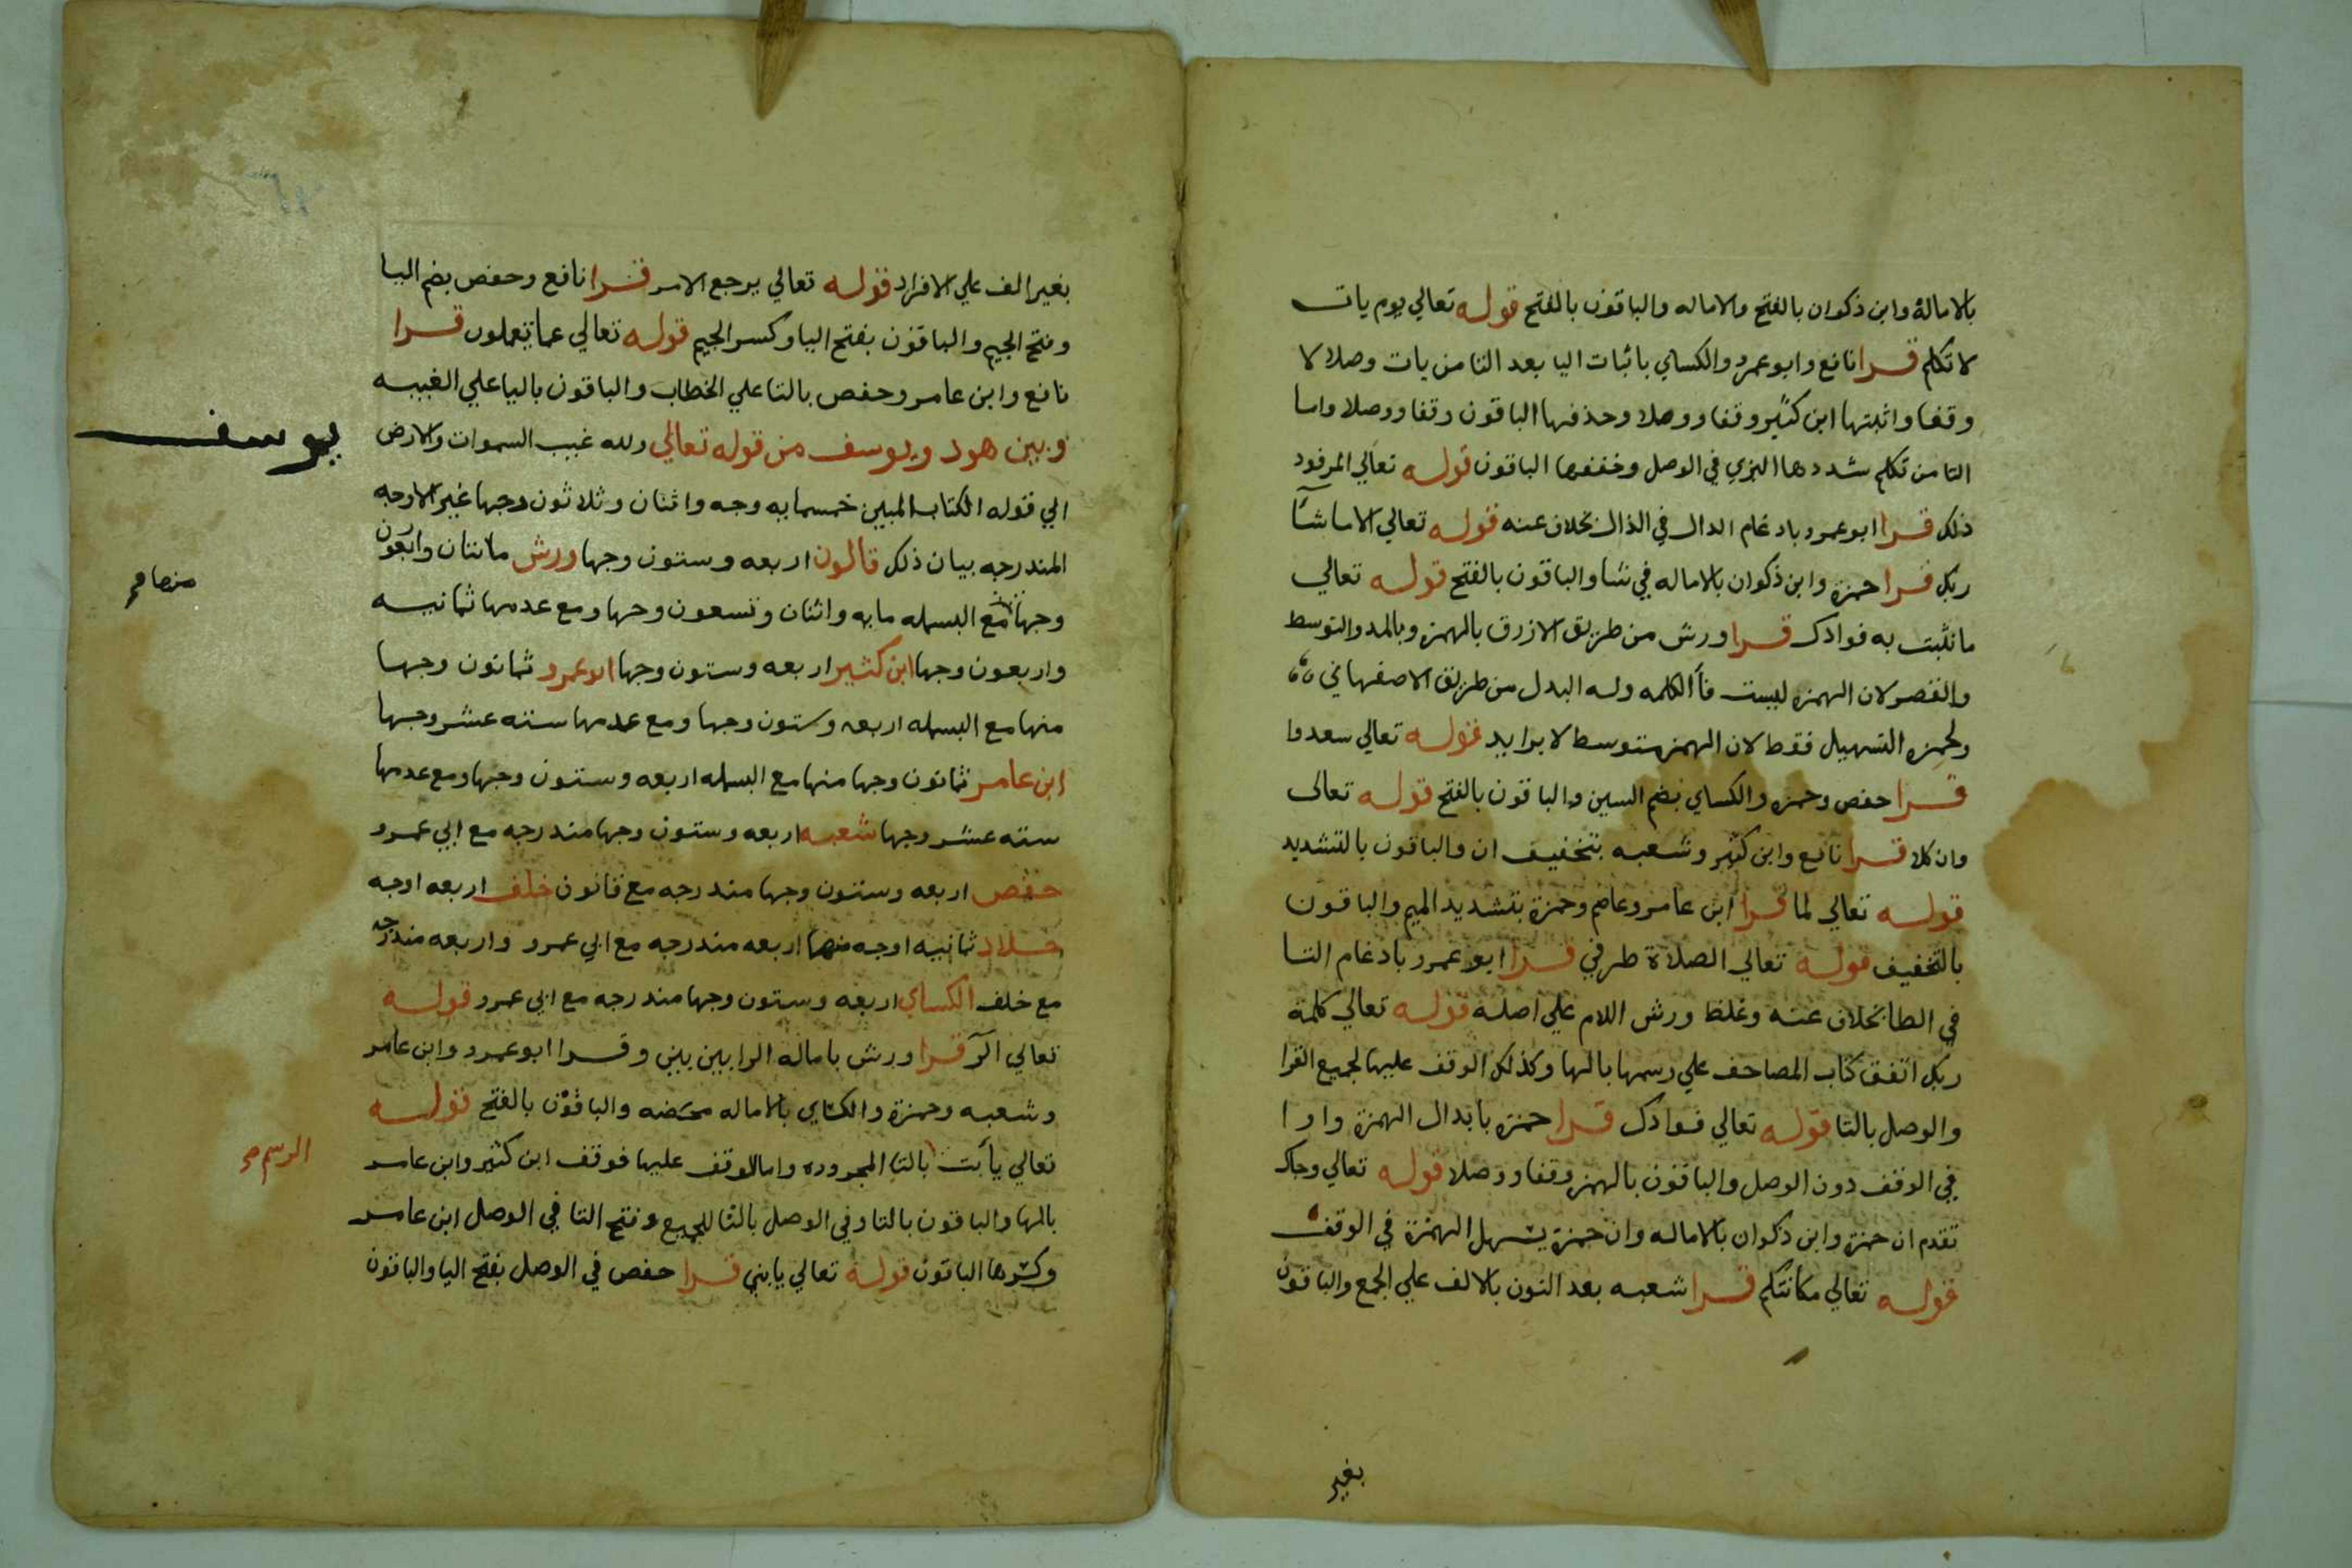 بالامالة وابن ذكوان بالفتح والاماله والباقون بالفتح قوله تعالي يوم يات
لا تكلم قرا نافع وابو عمرو والكساي باثبات اليا بعد التا من يات وصلا لا
وقفا واثبتها ابن كثير وقفا ووصلا وحذفها الباقون وقفا ووصلا واما
التا من تكلم شددها البزي في الوصل وخففها الباقون قوله تعالي المرفود
ذلك قرا ابو عمرو بادغام الدال في الذال بخلاف عنه قوله تعالي الا ما شآ
ربك قرا حمزة وابن ذكوان بالاماله في شا والباقون بالفتح قوله تعالي
ما نثبت به فوادك قرا ورش من طريق الازرق بالهمز وبالمد والتوسط
والقصر لان الهمزه ليست فأ الكلمه وله البدل من طريق الاصفهاني
ولحمزه التسهيل فقط لان الهمز متوسط لا بزايد قوله تعالي سعدوا
قرا حفص وحمزه والكساي بضم السين والباقون بالفتح قوله تعالى
وان كلا قرا نافع وابن كثير وشعبه بتخفيف ان والباقون بالتشديد
قوله تعالي لما قرا ابن عامر وعاصم وحمزة بتشديد الميم والباقون
بالتخفيف قوله تعالي الصلاة طرفي قرا ابو عمرو بادغام التا
في الطا بخلاف عنه وغلظ ورش اللام علي اصله قوله تعالي كلمة
ربك اتفق كتاب المصاحف علي رسمها بالها وكذلك الوقف عليها لجميع القرا
والوصل بالتا قوله تعالي فوادك قرا حمزة بابدال الهمزة واوا
في الوقف دون الوصل والباقون بالهمز وقفا ووصلا قوله تعالي وجاك
تقدم ان حمزة وابن ذكوان بالاماله وان حمزة يسهل الهمزة في الوقف
قوله تعالي مكانتكم قرا شعبه بعد النون بالالف علي الجمع والباقون
بغير
بغير الف علي الافراد قوله تعالي يرجع الامر قرا نافع وحفص بضم اليا
وفتح الجيم والباقون بفتح اليا وكسر الجيم قوله تعالي عما تعملون قرا
نافع وابن عامر وحفص بالتا علي الخطاب والباقون باليا علي الغيبه
وبين هود ويوسف من قوله تعالي ولله غيب السموات والارض
يوسف
الي قوله الكتاب المبين خمسمايه وجه واثنان وثلاثون وجها غير الاوجه
المندرجه بيان ذلك قالون اربعه وستون وجها ورش مائتان واربعون
وجها مع البسمله مايه واثنان وتسعون وجها ومع عدمها ثمانيه
منها صح
واربعون وجها ابن كثير اربعه وستون وجها ابو عمرو ثمانون وجها
منها مع البسمله اربعه وستون وجها ومع عدمها سته عشر وجها
ابن عامر ثمانون وجها منها مع البسمله اربعه وستون وجها ومع عدمها
سته عشر وجها شعبه اربعه وستون وجها مندرجه مع ابي عمرو
حفص اربعه وستون وجها مندرجه مع قانون خلف اربعه اوجه
خلاد ثمانيه اوجه منها اربعه مندرجه مع ابي عمرو واربعه مندرجه
مع خلف الكساي اربعه وستون وجها مندرجه مع ابي عمرو قوله
تعالي الٓر قرا ورش باماله الرا بين بين وقرا ابو عمرو وابن عامر
وشعبه وحمزة والكساي بالاماله محضه والباقون بالفتح قوله
تعالي يأبت بالتا المجروده واما الوقف عليها فوقف ابن كثير وابن عامر
الرسم صح
بالها والباقون بالتا وفي الوصل بالتا للجميع وفتح التا في الوصل ابن عامر
وكسرها الباقون قوله تعالي يابني قرا حفص في الوصل بفتح اليا والباقون